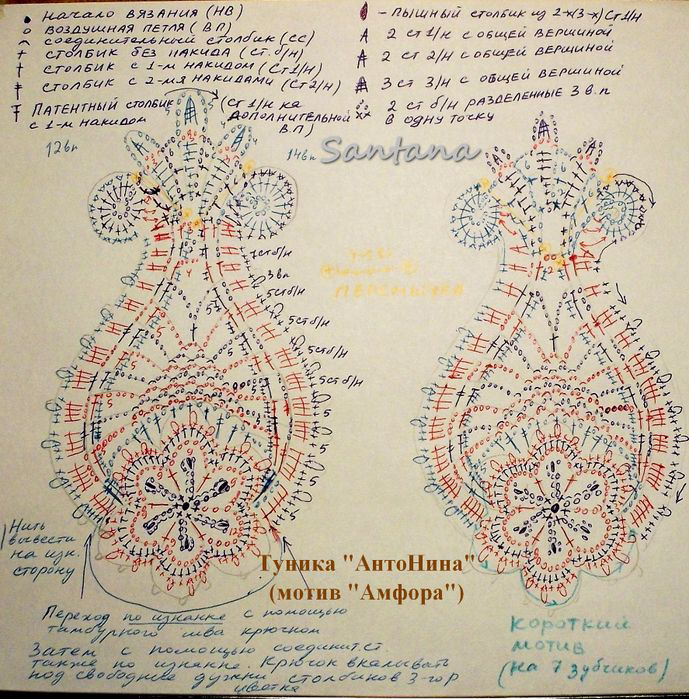 • начало вязания (НВ)
о воздушная петля (ВП)
⌒ соединительный столбик (СС)
+ столбик без накида (Ст. б/н)
столбик с 1-м накидом (Ст1/н)
столбик с 2-мя накидами (Ст2/н)
Патентный столбик (Ст 1/н на
с 1-м накидом дополнительной
в.п.)
- пышный столбик из 2-х(3-х) Ст1/н
2 ст 1/н с общей вершиной
2 ст 2/н с общей вершиной
3 ст 3/н с общей вершиной
2 ст б/н разделенные 3 в.п
в одну точку
12вп
14вп
Santana
7стб/н
3вп
5стб/н
5стб/н
5стб/н
5стб/н
перемычка
Нить
вывести
на изн.
сторону
Туника "АнтоНина"
(мотив "Амфора")
Переход по изнанке с помощью
тамбурного шва крючком
Затем с помощью соединит.ст.
также по изнанке. Крючок вкалывать
под свободные дужки столбиков 3-гор
цветка
короткий
мотив
(на 7 зубчиков)